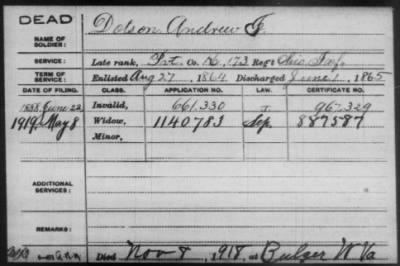 DEAD
NAME OF SOLDIER: Dotson Andrew J.
SERVICE: Late rank, Pvt. Co. K, 173 Reg't Ohio Inf.
TERM OF SERVICE: Enlisted Aug 27, 1864 Discharged June 1, 1865
DATE OF FILING. CLASS. APPLICATION NO. LAW. CERTIFICATE NO.
1888, June 22 Invalid, 661.330 J. 967.329
1919, May 8 Widow, 1140783 Sep. 887587
Minor,
ADDITIONAL SERVICES:
REMARKS:
Died Nov 8, 1918, at Bulger W Va